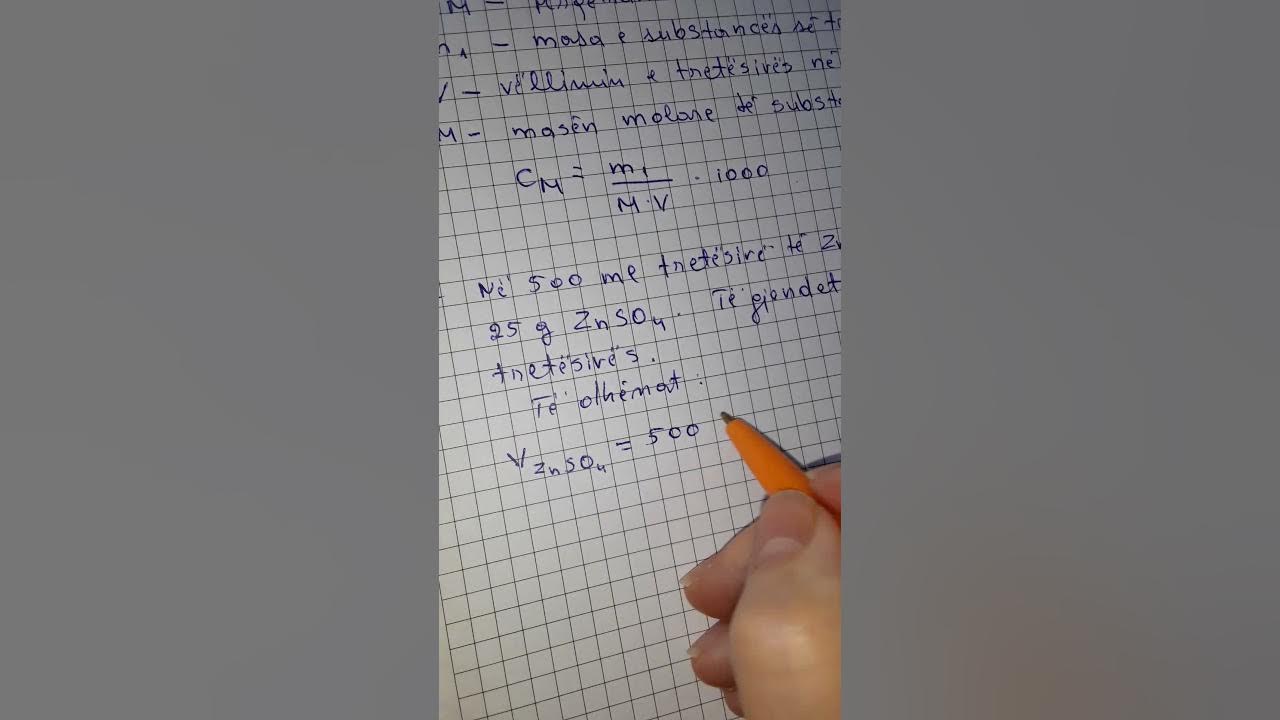 M –
– masa e substancës së
V – vëllimin e tretësirës në
M – masën molare të
C_M = m₁ / M·V · 1000
Në 500 ml tretësirë të
25 g ZnSO₄. Të gjendet
tretësirës.
Të dhënat:
V ZnSO₄ = 500